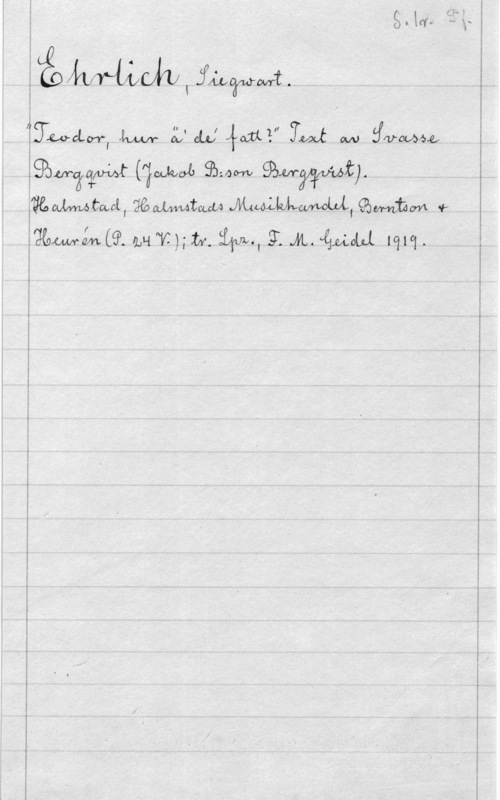 S. br. Pf.
Ehrlich, Siegwart.
"Teodor, hur ä' de' fatt?" Text av Svasse
Bergqvist (Jakob B:son Bergqvist).
Halmstad, Halmstads Musikhandel, Berntson &
Heurén (P. 24 V.); tr. Lpz., F. M. Geidel 1919.